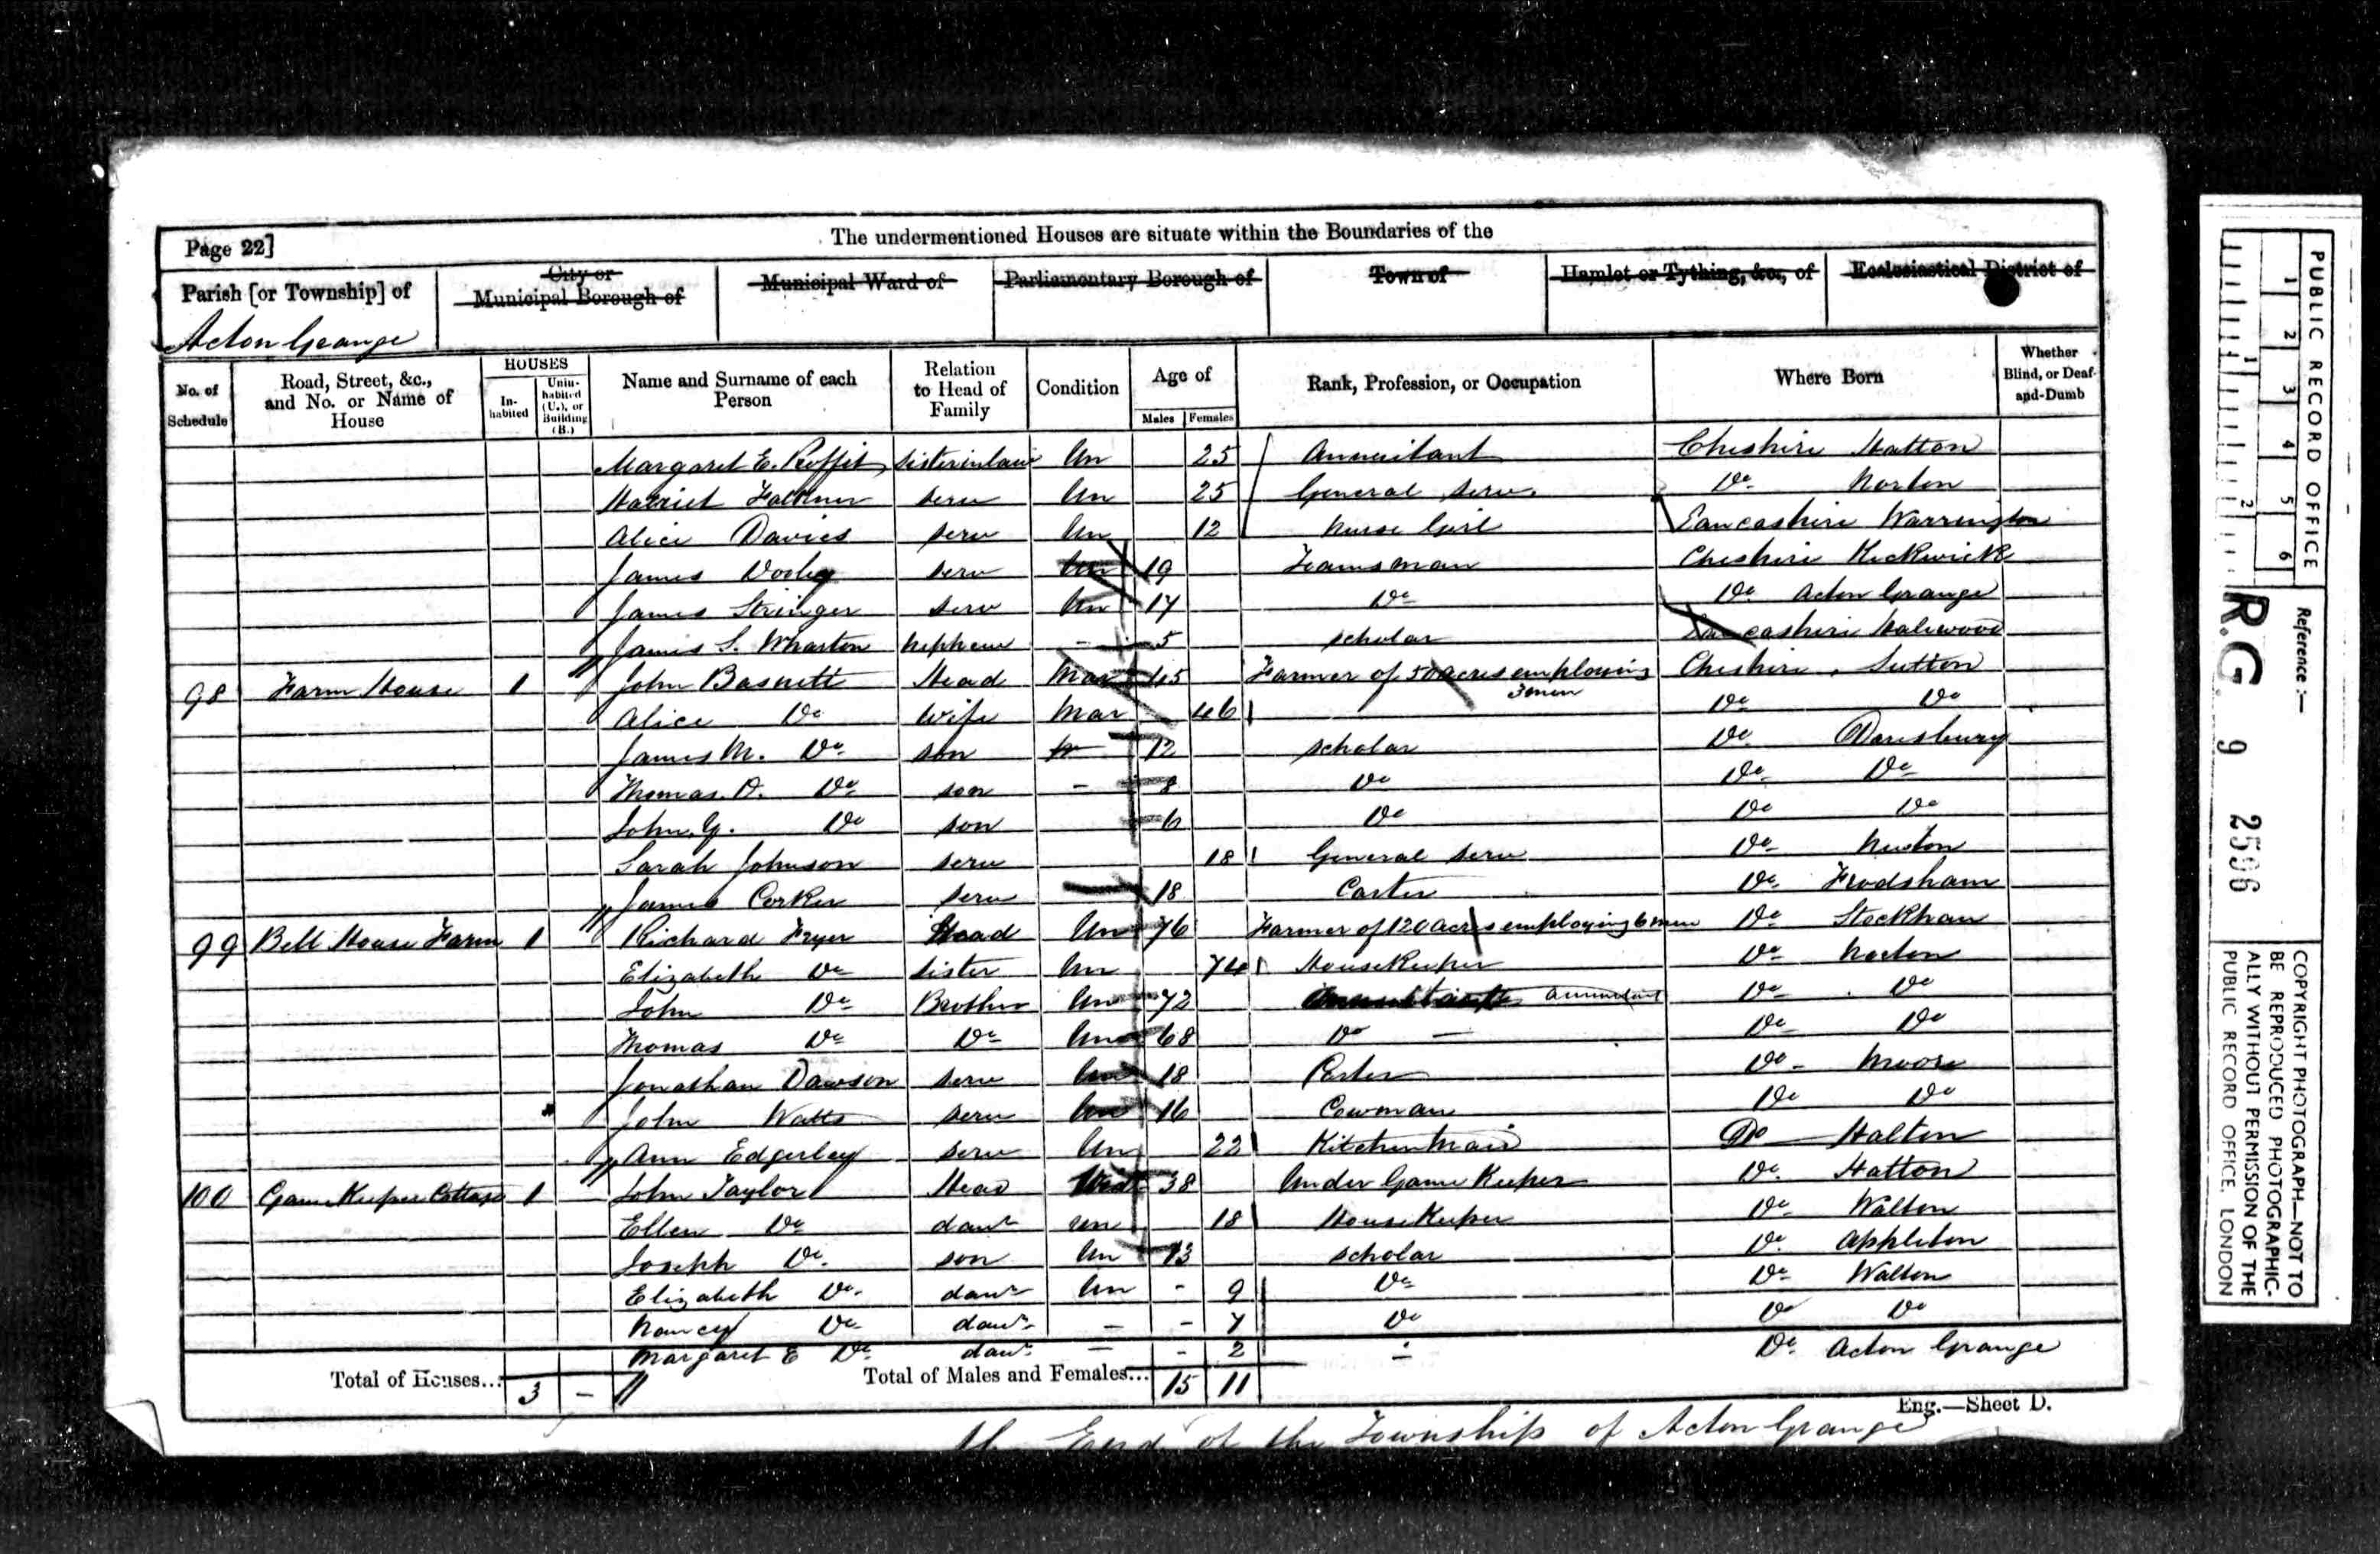 Page 22]
The undermentioned Houses are situate within the Boundaries of the
Parish [or Township] of
City or Municipal Borough of
Municipal Ward of
Parliamentary Borough of
Town of
Hamlet or Tything, &c., of
Ecclesiastical District of
Acton Grange
No. of Schedule
Road, Street, &c., and No. or Name of House
HOUSES
In-habited
Unin-habited (U.), or Building (B.)
Name and Surname of each Person
Relation to Head of Family
Condition
Age of
Males
Females
Rank, Profession, or Occupation
Where Born
Whether Blind, or Deaf-and-Dumb
Margaret E. sister in law Un 25 Annuitant Cheshire Hatton
Harriet serv Un 25 General serv. Do Norton
Alice Davies serv Un 12 Nurse Girl Lancashire Warrington
James serv Un 19 Teamsman Cheshire Keckwick
James Stringer serv Un 17 Do Do Acton Grange
James S. Wharton Nephew - 5 scholar Lancashire Halewood
98 Farm House 1 John Basnett Head Mar 45 Farmer of 50 acres employing 3 men Cheshire, Sutton
Alice Do Wife Mar 46 Do Do
James M. Do son 12 scholar Do Daresbury
Thomas. O. Do son - 8 Do Do Do
John. G. Do son 6 Do Do Do
Sarah Johnson serv 18 General serv Do Newton
James Corker serv 18 Carter Do Frodsham
99 Bell House Farm 1 Richard Fryer Head Un 76 Farmer of 120 acres employing 6 men Do Stockham
Elizabeth Do sister Un 74 HouseKeeper Do Norton
John Do Brother Un 72 annuitant Do Do
Thomas Do Do Un 68 Do — Do Do
Jonathan Dawson serv Un 18 Carter Do Moore
John Watts serv Un 16 Cowman Do Do
Ann Edgerley serv Un 22 Kitchen Maid Do Halton
100 Game Keeper Cottage 1 John Taylor Head 38 Under Game Keeper Do Hatton
Ellen Do daur Un 18 House Keeper Do Walton
Joseph Do son Un 13 scholar Do Appleton
Elizabeth Do daur Un - 9 Do Do Walton
Nancy Do daur — - 7 Do Do Do
Margaret E Do daur — - 2 - Do Acton Grange
Total of Houses... 3 –
Total of Males and Females... 15 11
Eng.—Sheet D.
The End of the Township of Acton Grange
PUBLIC RECORD OFFICE
1 2 3 4 5 6
1 2
Reference :—
R.G. 9 2596
COPYRIGHT PHOTOGRAPH—NOT TO BE REPRODUCED PHOTOGRAPHIC-ALLY WITHOUT PERMISSION OF THE PUBLIC RECORD OFFICE, LONDON